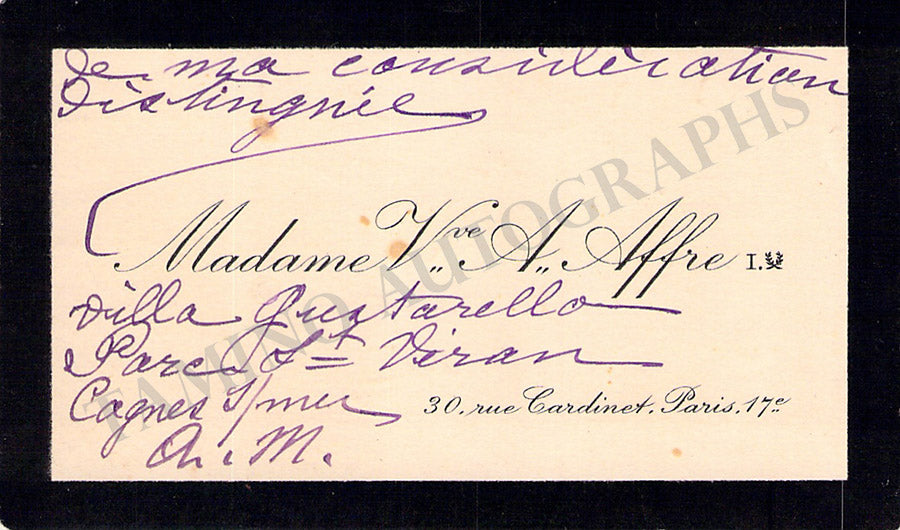 de ma considération
distinguée
Madame Vve A. Affre I.
Villa Quatarello
Parc St Véran
Cagnes s/mer
A. M.
30, rue Cardinet, Paris, 17e
TAMINO AUTOGRAPHS